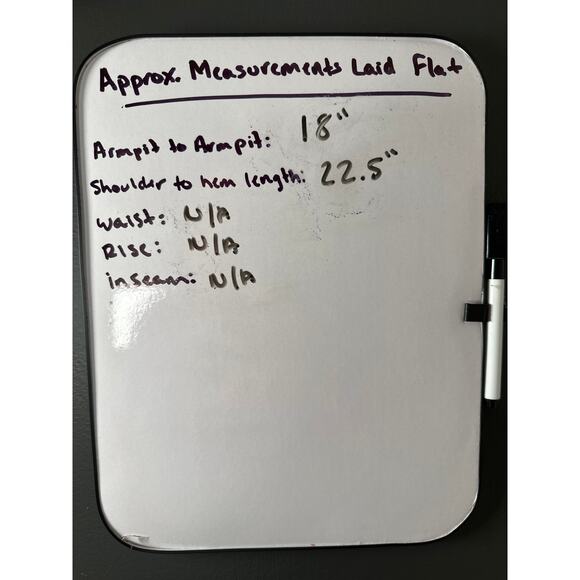 Approx. Measurements Laid Flat
Armpit to Armpit: 18"
Shoulder to hem length: 22.5"
waist: N/A
Rise: N/A
inseam: N/A